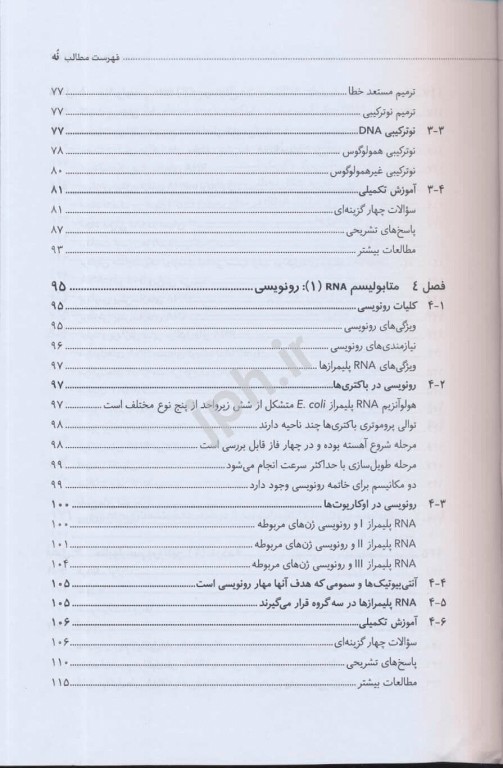 فهرست مطالب نُه
ترمیم مستعد خطا ۷۷
ترمیم نوترکیبی ۷۷
۳-۳ نوترکیبی DNA ۷۷
نوترکیبی همولوگوس ۷۸
نوترکیبی غیرهمولوگوس ۸۰
۳-۴ آموزش تکمیلی ۸۱
سؤالات چهار گزینه‌ای ۸۱
پاسخ‌های تشریحی ۸۷
مطالعات بیشتر ۹۳
فصل ۴ متابولیسم RNA (۱): رونویسی ۹۵
۴-۱ کلیات رونویسی ۹۵
ویژگی‌های رونویسی ۹۵
نیازمندی‌های رونویسی ۹۶
ویژگی‌های RNA پلیمرازها ۹۷
۴-۲ رونویسی در باکتری‌ها ۹۷
هولوآنزیم RNA پلیمراز E. coli متشکل از شش زیرواحد از پنج نوع مختلف است ۹۷
توالی پروموتری باکتری‌ها چند ناحیه دارند ۹۸
مرحله شروع آهسته بوده و در چهار فاز قابل بررسی است ۹۸
مرحله طویل‌سازی با حداکثر سرعت انجام می‌شود ۹۹
دو مکانیسم برای خاتمه رونویسی وجود دارد ۹۹
۴-۳ رونویسی در اوکاریوت‌ها ۱۰۰
RNA پلیمراز I و رونویسی ژن‌های مربوطه ۱۰۰
RNA پلیمراز II و رونویسی ژن‌های مربوطه ۱۰۱
RNA پلیمراز III و رونویسی ژن‌های مربوطه ۱۰۴
۴-۴ آنتی‌بیوتیک‌ها و سمومی که هدف آنها مهار رونویسی است ۱۰۵
۴-۵ RNA پلیمرازها در سه گروه قرار می‌گیرند ۱۰۵
۴-۶ آموزش تکمیلی ۱۰۶
سؤالات چهار گزینه‌ای ۱۰۶
پاسخ‌های تشریحی ۱۱۰
مطالعات بیشتر ۱۱۵
jph.ir